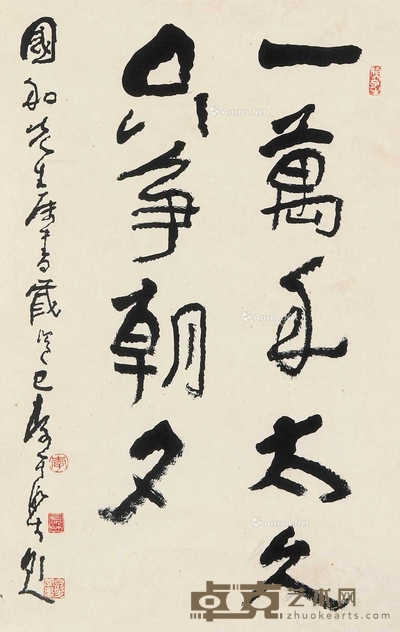 一萬年太久
只争朝夕
國和先生屬書歲巳李
卓克艺术网
zhuokearts.com
Artron.Net